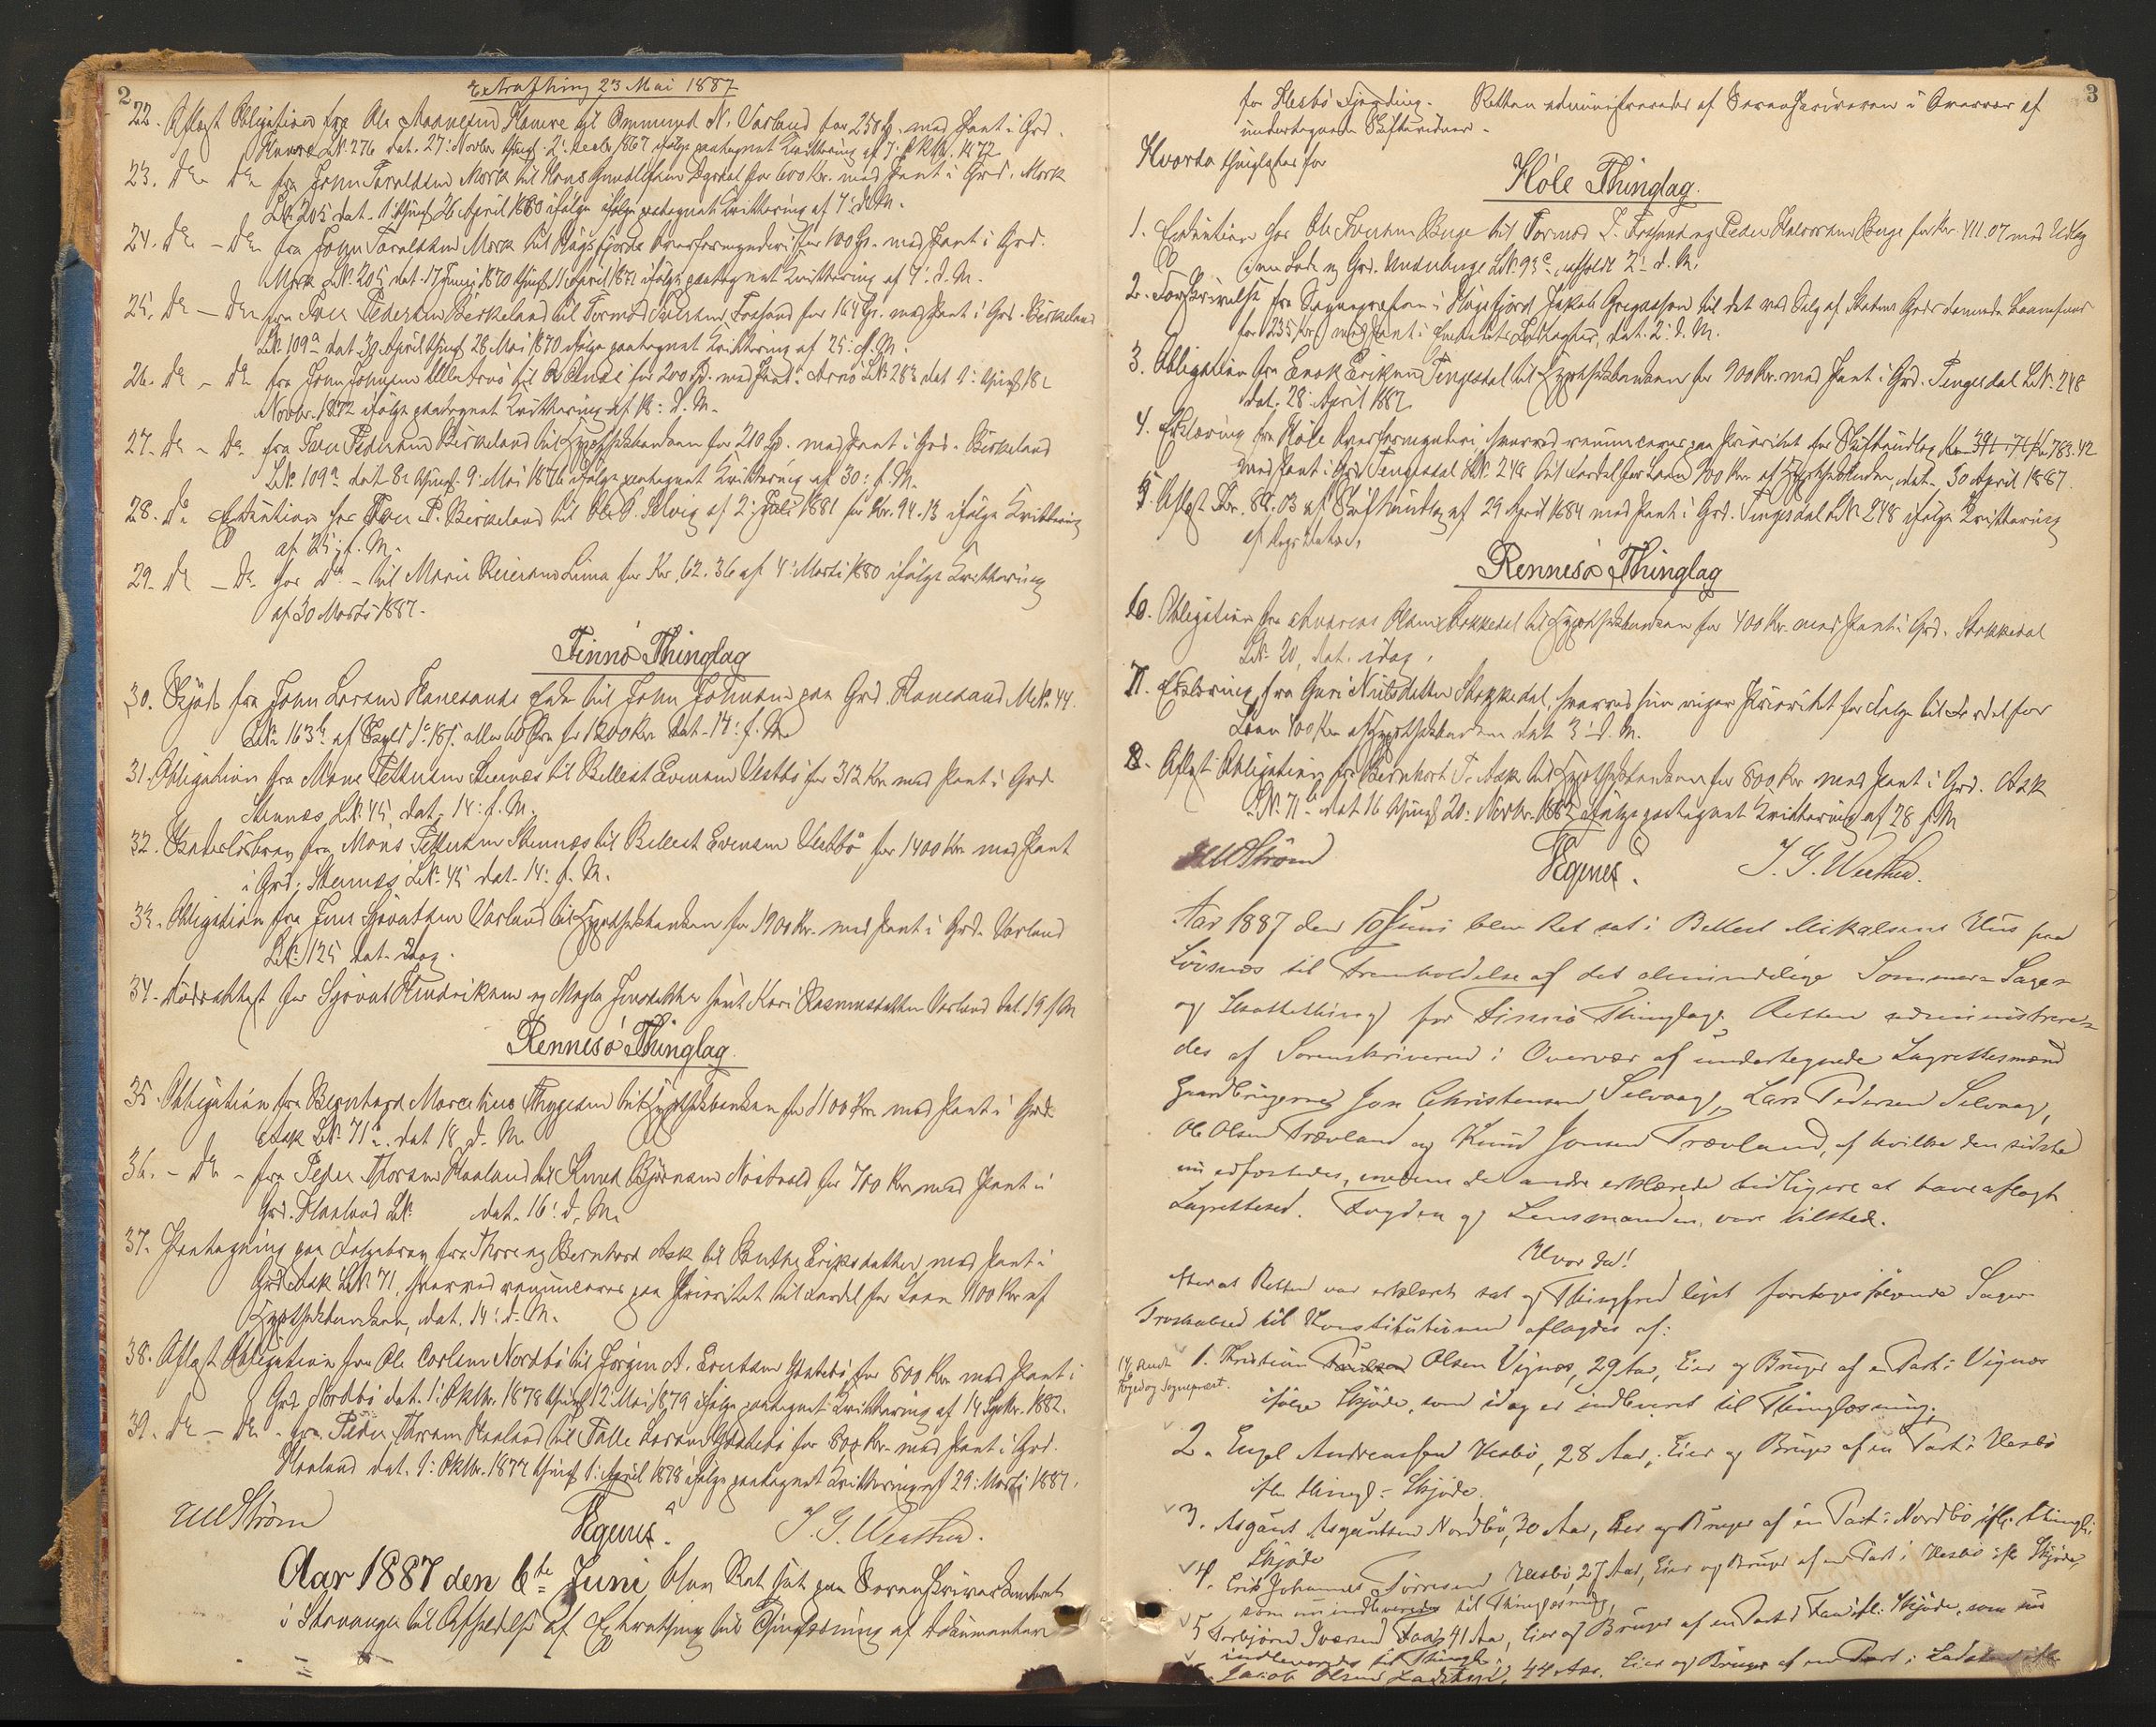 2
Extrathing 23 Mai 1887
22. Aflyst Obligation fra Ole Aadnesen Haavre til Ommund N. Varland for 250 Sp. med Pant i Grd.
LNr. 276 dat. 27: Novbr thingl. 2: 1867 ifølge paategnet Kvittering af 7: Oktbr. 1872
23. Do Do fra John Taraldsen Mork til Hans Gundersen for 600 Kr. med Pant i Grd. Mork
LNr 205 dat. 1: thingl. 26 April 1880 ifølge paategnet Kvittering af 7: d. M.
24. Do - Do fra John Taraldsen Mork til Høgsfjords Overformynderi for 100 Sp. med Pant i Grd.
Mork LNr. 205 dat. 17 Juni 1870 thingl. 11 April 1871 ifølge paategnet Kvittering af 7: d. M.
25. Do - Do fra Iver Pedersen Birkeland til Tormod Fossand for 164 Sp. med Pant i Grd. Birkeland
LNr. 109a dat. 30 April thingl. 28 Mai 1870 ifølge paategnet Kvittering af 25: f. M.
26. Do - Do fra John Johnsen til for 200 Sp. med Pant i LNr. 28a dat 1: thingl. 18:
Novbr. 1872 ifølge paategnet Kvittering af 18: d. M.
27. Do - Do fra Iver Pedersen Birkeland til Hypothekbanken for 210 Sp. med Pant i Grd. Birkeland
LNr. 109a dat 8: thingl. 9: Mai 1876 ifølge paategnet Kvittering af 30: f. M.
28. Do Exekution hos Iver P. Birkeland til Ole P. Selvig af 2: Juli 1881 for Kr. 94.13 ifølge Kvittering
af 25: f. M.
29. Do - Do hos Do - til Marie Reiersen Lima for Kr. 62.36 af 4: Marts 1880 ifølge Kvittering
af 30 Marts 1887.
Finnø Thinglag
30. Skjøde fra John Larsen Hanesand til John Johnsen paa Grd. Hanesand MNr. 44.
LNr 163b af Skyld for 1200 Kr. dat. 14: f. M.
31. Obligation fra Mons Pettersen Steinnæs til Bellest Evensen Vestbø for 312 Kr. med Pant i Grd.
Steinnæs LNr. 45 dat. 14: f. M.
32. Skadesløsbrev fra Mons Pettersen Steinnæs til Bellest Evensen Vestbø for 1400 Kr. med Pant
i Grd. Steinnæs LNr. 45 dat. 14: f. M.
33. Obligation fra Jens Sjøvatsen Varland til Hypothekbanken for 1900 Kr. med Pant i Grd. Varland
LNr. 125 dat. idag.
34. Dødsattest for Sjøvat Hendriksen og Magla Jonsdatter samt Kari Rasmusdatter Varland dat. 19 f. M.
Rennesø Thinglag.
35. Obligation fra Bernhard Marcelius Thygesen til Hypothekbanken for 1100 Kr. med Pant i Grd.
Ask LNr. 71a. dat 18 d. M.
36. - Do - fra Peder Thorsen Haaland til Knud Bjørnsen for 700 Kr. med Pant i
Grd. Haaland LNr. dat. 16: d. M.
37. Paategning paa Følgebrev fra Thore og Bernhard Ask til Berthe Eriksdatter med Pant i
Grd. Ask LNr. 71, hvorved renunceres paa Prioritet til Fordel for Laan 1100 Kr. af
Hypothekbanken, dat. 14: d. M.
38. Aflyst Obligation fra Ole Carlsen Nordbø til Jørgen A. for 800 Kr. med Pant i
Grd. Nordbø dat. 1: Oktbr. 1878 thingl. 12: Mai 1879 ifølge paategnet Kvittering af 14 Septbr. 1882.
39. Do - Do - fra Peder Thorsen Haaland til Talle Larsen for 800 Kr. med Pant i Grd.
Haaland dat. 1: Oktbr. 1877 thingl. 1: April 1878 ifølge paategnet Kvittering af 29: Marts 1887.
Strøm Vegner. J. G. Werther.
Aar 1887 den 6te Juni blev Ret sat paa Sorenskriverkontoret
i Stavanger til Afholdelse af Extrathing til Thinglæsning af Dokumenter
3
for Hesbø Fjerding. Retten administreredes af Sorenskriveren i Overvær af
undertegnede Skiftevidner.
Hvorda thinglystes for
Høle Thinglag.
1. Exekution hos Ole Berge til Tormod T. Fossand og Peder Halvorsen Berge for Kr. 411.07 med Udlæg
i og Grd. Underberge LNr. 93a, afholdt 2: d. M.
2. Forskrivelse fra i Høgsfjord Jakob Gregussen til det ved Salg af Statens Gods dannede Laanefond
for 235 Kr. med Pant i dat. 2: d. M.
3. Obligation fra Enok Eriksen Tengesdal til Hypothekbanken for 900 Kr. med Pant i Grd. Tengesdal LNr. 248
dat. 28: April 1887.
4. Erklæring fra Høle Overformynderi hvorved renunceres paa Prioritet for Skifteudlæg Kr. 783.42
med Pant i Grd. Tengesdal LNr. 248 til Fordel for Laan 900 Kr. af Hypothekbanken, dat. 30 April 1887.
5. Aflyst Kr. 88.03 af Skifteudlæg af 29 April 1884 med Pant i Grd. Tengesdal LNr 248 ifølge Kvittering
af
Rennesø Thinglag
6. Obligation fra Andreas Olsen Stokkedal til Hypothekbanken for 400 Kr. med Pant i Grd. Stokkedal
LNr. 20, dat. idag.
7. Erklæring fra Guri Nilsdatter Stokkedal, hvorved hun viger Prioritet for Følge til Fordel for
Laan 400 Kr. af Hypothekbanken dat 3: d. M.
8. Aflyst Obligation fra Bernhart T. Ask til Hypothekbanken for 800 Kr. med Pant i Grd. Ask
LNr. 71a dat 16 thingl. 20: Novbr. 1882 ifølge paategnet Kvittering af 28 f. M.
Strøm Vegner. J. G. Werther.
Aar 1887 den 10 Juni blev Ret sat i Bellest Mikalsens Hus paa
Loisnæs til Fremholdelse af det almindelige Sommer- Sage-
og Skattething for Finnø Thinglag. Retten administrere-
des af Sorenskriveren i Overvær af undertegnede Lagrettesmænd
Gaardbrugerne Jon Christensen Selvaag, Lars Pedersen Selvaag,
Ole Olsen Trævland og Knud Jonsen Trævland, af hvilke den sidste
nu edfæstedes, medens de andre erklærede tidligere at have aflagt
Lagretteed. Fogden og Lensmanden var tilstede.
Hvorda!
Efterat Retten var erklæret sat og Thingfred lyst foretoges følgende Sager
Troskabsed til Konstitutionen aflagdes af:
Foged og Sognepræst.
1. Kristian Olsen Vignæs, 29 Aar, Eier og Bruger af en Part i Vignæs
ifølge Skjøde, som idag er indleveret til Thinglæsning.
2. Engel Andreassen Hesbø, 28 Aar, Eier og Bruger af en Part i Hesbø
ifle thingl. Skjøde.
3. Asgaut Asgautsen Nordbø, 30 Aar, Eier og Bruger af en Part i Nordbø ifle. thingl.
Skjøde
4. Erik Johannes Tørresen Hesbø, 27 Aar, Eier og Bruger af en Part i Hesbø ifle Skjøde,
som nu indleveredes til Thinglæsning,
5 Torbjørn Iversen 41 Aar, Eier og Bruger af en Part i ifl. Skjøde, som nu
indleveredes til Thingl.
Jacob Olsen Ladstein, 44 Aar, Eier og Bruger af en Part i Ladstein ifle